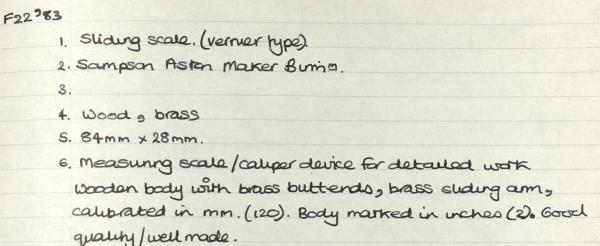 F22'83
1. Sliding scale. (vernier type).
2. Sampson Aston Maker Birm
3.
4. Wood, brass
5. 84mm x 28mm.
6. Measuring scale/caliper device for detailed work.
Wooden body with brass buttends, brass sliding arm,
calibrated in mm. (120). Body marked in inches (2). Good
quality/well made.